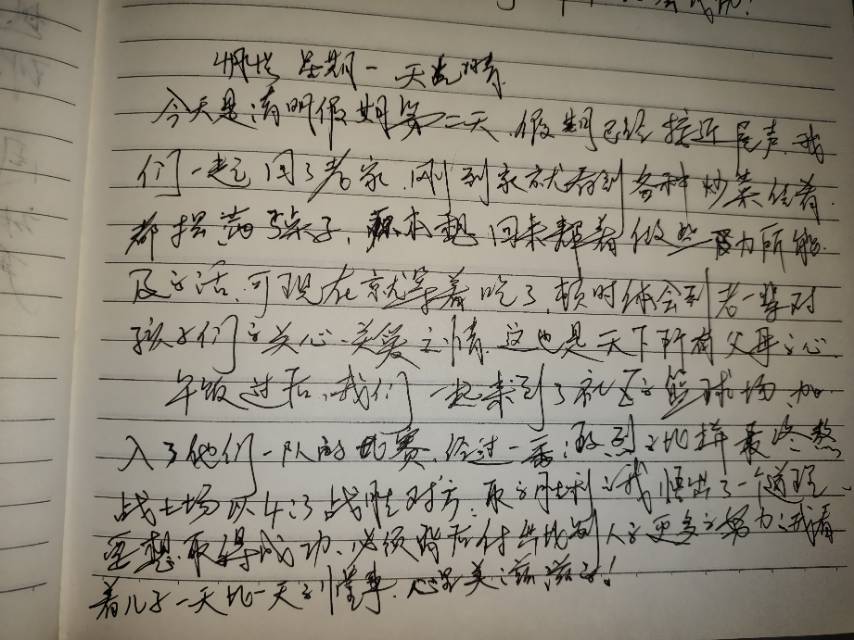 星期一 天气晴
今天是清明假期第二天,假期已经接近尾声,我
们一起回了老家,刚到家就看到各种炒菜佳肴
都摆满了桌子,原本想回来帮着做些力所能
及的活,可现在就等着吃了,顿时体会到老一辈对
孩子们的关心、关爱之情,这也是天下所有父母之心
午饭过后,我们一起来到了社区的篮球场,加
入了他们一队的比赛,经过一番激烈的比拼最终鏖
战七场以4:3战胜对方,取的胜利,我悟出了一个道理,
要想取得成功,必须背后付出比别人的更多的努力,我看
着儿子一天比一天的懂事,心里美滋滋的!